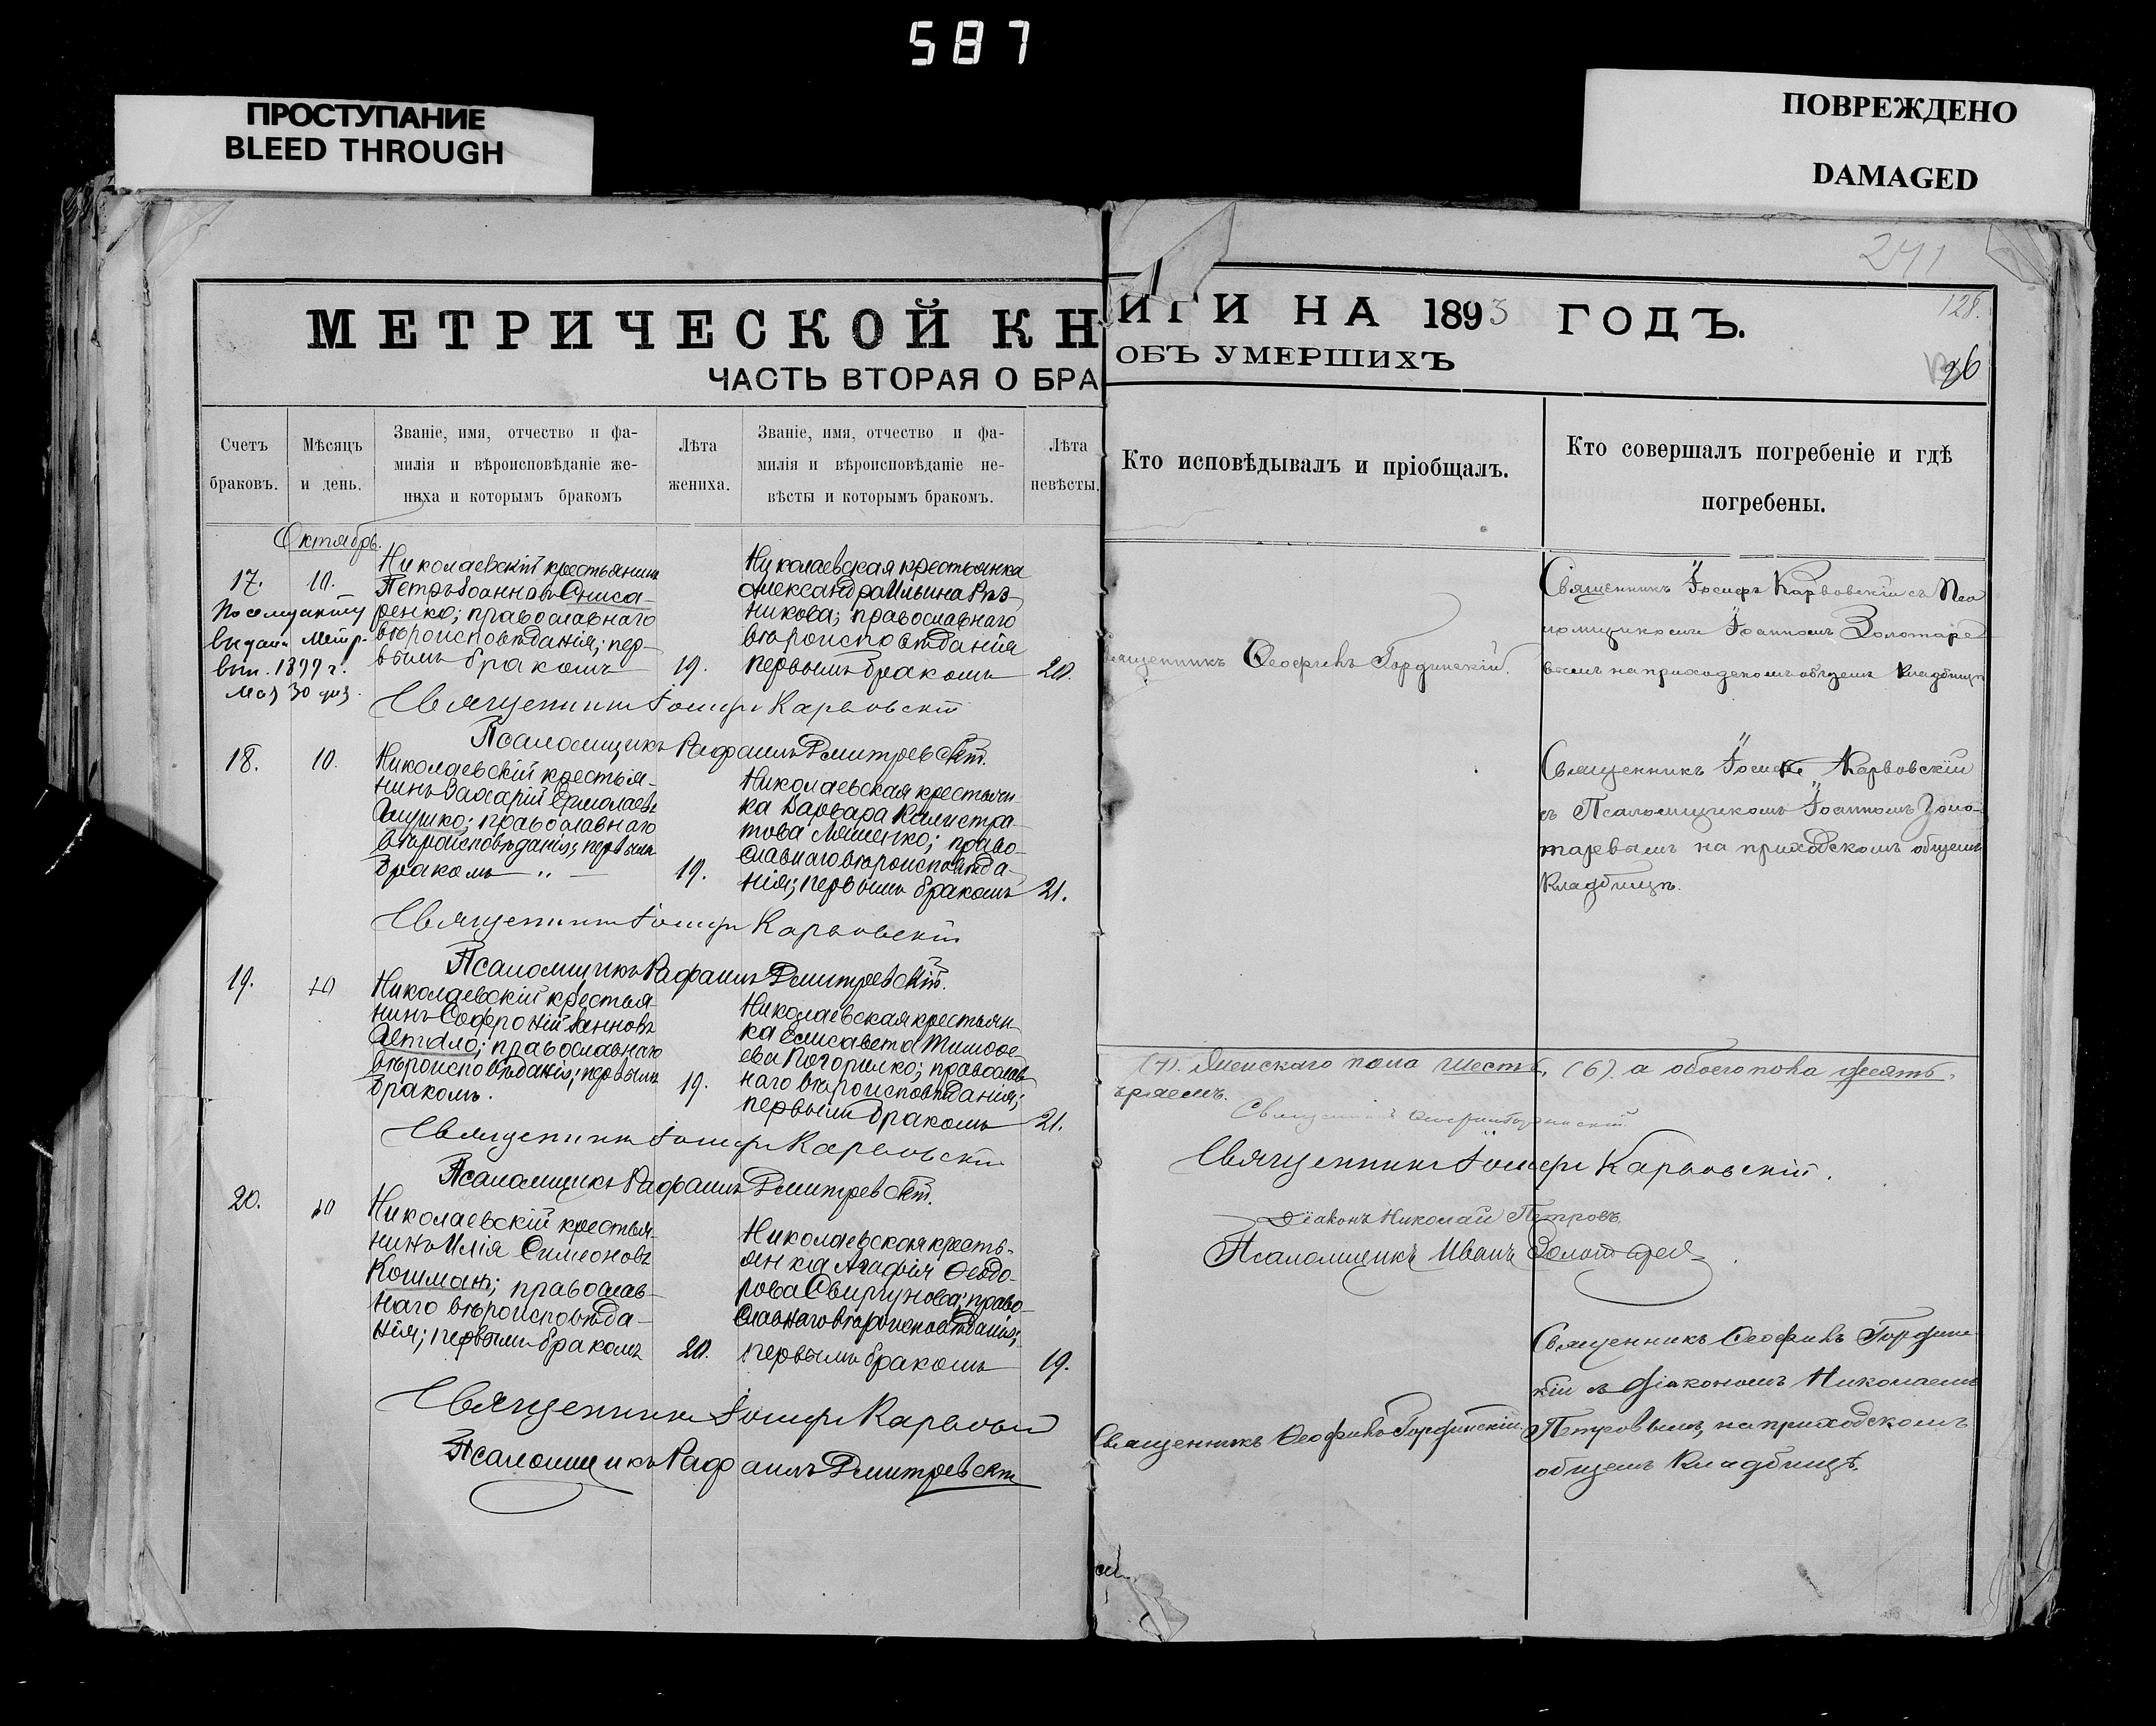 587
ПРОСТУПАНИЕ
BLEED THROUGH
ПОВРЕЖДЕНО
DAMAGED
241
128.
МЕТРИЧЕСКОЙ КН
ЧАСТЬ ВТОРАЯ О БРА
Счетъ браковъ.
Мѣсяцъ и день.
Званіе, имя, отчество и фа-
милія и вѣроисповѣданіе же-
ниха и которымъ бракомъ
Лѣта жениха.
Званіе, имя, отчество и фа-
милія и вѣроисповѣданіе не-
вѣсты и которымъ бракомъ.
Лѣта невѣсты.
Октябрь.
17.
10.
Николаевскій крестьянинъ
Петръ ІоанновъОниса-
ренко; православнаго
вѣроисповѣданія; пер-
вымъ бракомъ
19.
Николаевская крестьянка
Александра Ильина Рѣз-
никова; православнаго
вѣроисповѣданія
первымъ бракомъ
20.
выдана Метр.
вып. 1899 г.
Мая 30 дня.
Священникъ Іосифъ Карвовскій
Псаломщикъ Рафаилъ Дмитревскій.
18.
10.
Николаевскій крестья-
нинъ Захарій Ермолаевъ
православнаго
вѣроисповѣданія; первымъ
бракомъ
19.
Николаевская крестьян-
ка Варвара Калистра-
това Ляшенко; право-
славнаго вѣроисповѣда-
нія; первымъ бракомъ
21.
Священникъ Іосифъ Карвовскій
Псаломщикъ Рафаилъ Дмитревскій.
19.
10
Николаевскій крестья-
нинъ Софроній Іанновъ
православнаго
вѣроисповѣданія; первымъ
бракомъ.
19.
Николаевская крестьян-
ка Елисавета Тимофе-
ева Погорилко; православ-
наго вѣроисповѣданія;
первымъ бракомъ
21.
Священникъ Іосифъ Карвовскій
Псаломщикъ Рафаилъ Дмитревскій.
20.
10
Николаевскій крестья-
нинъ Илія Симеоновъ
Кошманъ; православ-
наго вѣроисповѣда-
нія; первымъ бракомъ
20.
Николаевская кресть-
янка Агафія Ѳеодо-
рова Свиргунова; право-
славнаго вѣроисповѣданія;
первымъ бракомъ
19.
Священникъ Іосифъ Карвовскій
Псаломщикъ Рафаилъ Дмитревскій
ИГИ НА 1893 ГОДЪ.
ОБЪ УМЕРШИХЪ
Кто исповѣдывалъ и пріобщалъ.
Кто совершалъ погребеніе и гдѣ
погребены.
Священникъ Ѳеофилъ Гординскій.
Священникъ Іосифъ Карвовскій съ Пса
ломщикомъ Іоанномъ Золотаре
вымъ на приходскомъ общемъ кладбищѣ
Священникъ Іосифъ Карвовскій
съ Псаломщикомъ Іоанномъ Золо-
таревымъ на приходскомъ общемъ
кладбищѣ.
Женскаго пола шесть, (6). а обоего пола десять.
Священникъ Іосифъ Карвовскій.
Діаконъ Николай Петровъ.
Псаломщикъ Иванъ Золотарев
Священникъ Ѳеофилъ Гординскій.
Священникъ Ѳеофилъ Гордин
скій съ Діакономъ Николаемъ
Петровымъ, на приходскомъ
общемъ кладбищѣ.